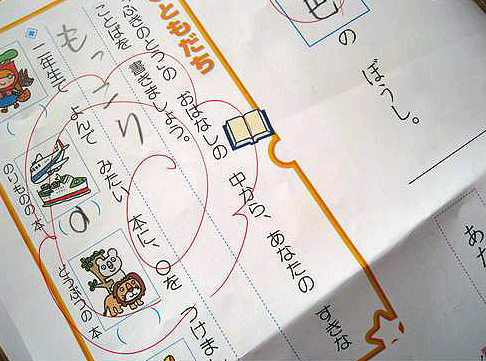 の ぼうし。
あ
ともだち
ふきのとうの おはなしの 中から、 あなたの すきな
ことばを 書きましょう。
もっこり
二年生で よんで みたい 本に、○を つけま
のりものの 本
どうぶつの 本